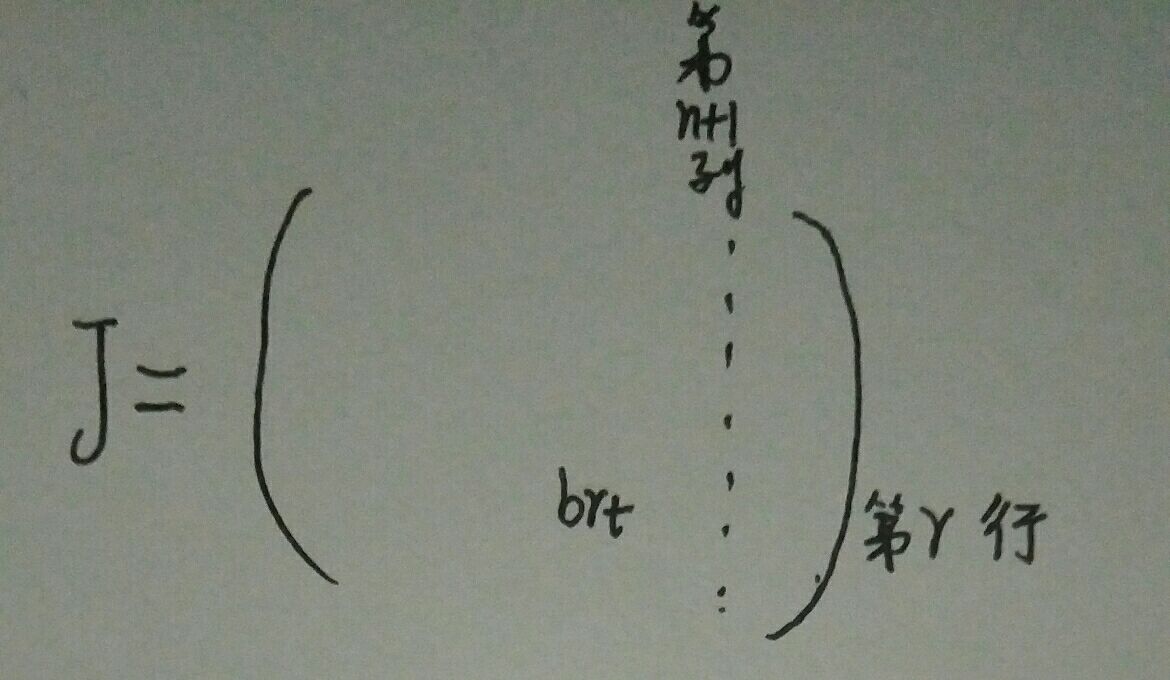 第
n+1
列
J=
brt
第r行